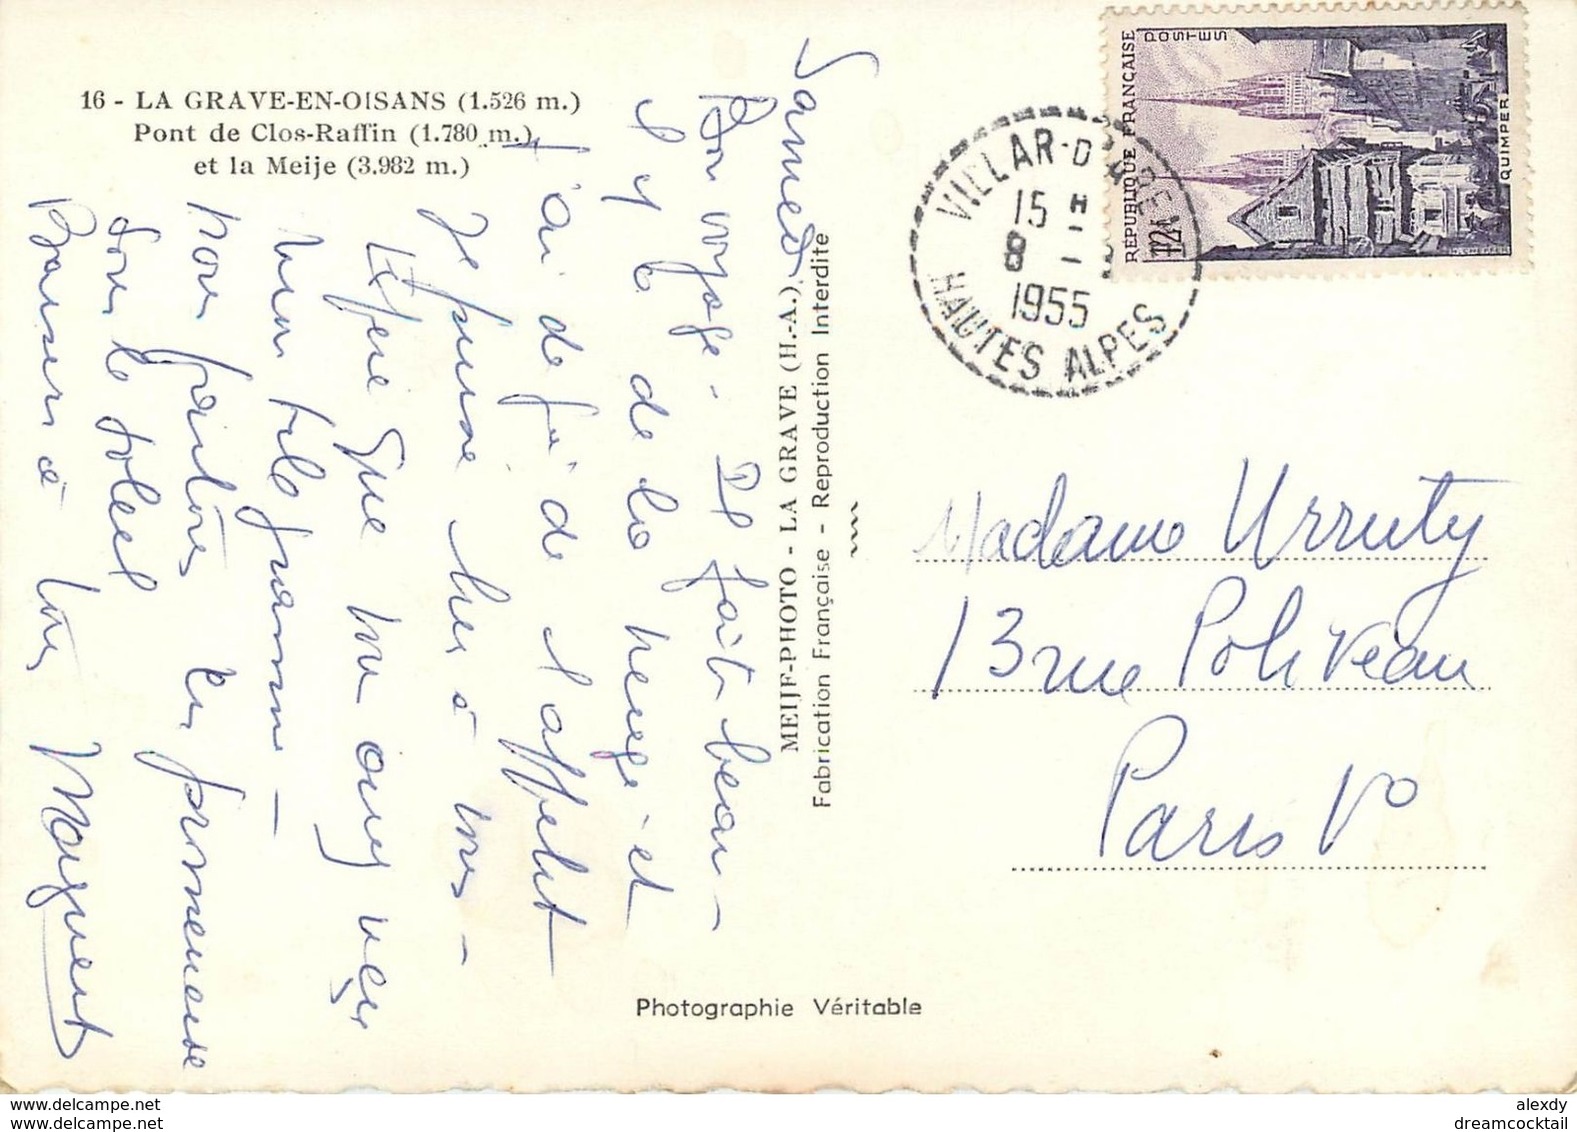 16 - LA GRAVE-EN-OISANS (1.526 m.)
Pont de Clos-Raffin (1.780 m.)
et la Meije (3.982 m.)
Samedi
Bon voyage - Il fait beau -
Il y a de la neige et
j'ai de jà de l'appetit
Je pense bien à vous -
J'espère que vous avez reçu
mon télégramme -
nous partons en promenade
sous le soleil
Baisers à tous
MEIJE-PHOTO - LA GRAVE (H.-A.)
Fabrication Française - Reproduction Interdite
Photographie Véritable
RÉPUBLIQUE FRANÇAISE
POSTES
12F
QUIMPER
VILLAR-D'ARENE
15 H
8 -
1955
HAUTES ALPES
Madame Urruty
13 rue Poliveau
Paris V°
delcampe.net
delcampe.net
alexdy
dreamcocktail